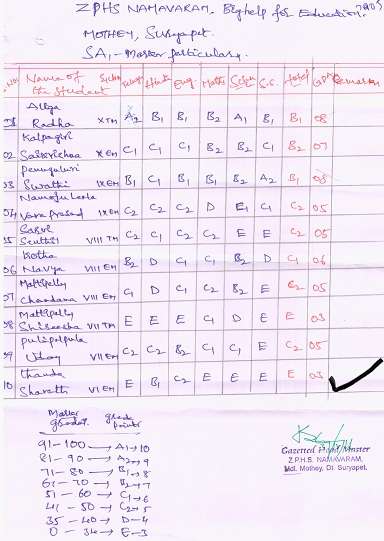 ZPHS NAMAVARAM, Big help for Education.
MOTHEY, Suryapet.
SA1 - Master particulars.
Name of the Student Telugu Hindi Eng Maths S.S. Total GPA Remarks
Radha X TM A2 B1 B1 B2 A1 B1 B1 08
Kalpagiri
02 X EM C1 C1 C1 B2 B2 C1 B2 07
03 Swathi IX EM B1 C1 B1 B1 B2 A2 B1 08
04 Vara Prasad IX EM C2 C2 C2 D E C1 C2 05
VIII TM C2 C2 C2 C2 E E C2 05
Kotha
06 Navya VIII EM B2 D C1 C1 B2 D C1 06
Mattipally
07 Chandana VIII EM C1 D C1 C2 B2 E C2 05
Mattipally
08 Shireesha VII TM E E E C1 D E E 03
09 Uday VII EM C2 C2 B2 C1 C1 E C2 05
Thanda
10 Sharath VI EM E B1 C2 E E E E 03
grade points
91-100 → A1 → 10
81-90 → A2 → 9
71-80 → B1 → 8
61-70 → B2 → 7
51-60 → C1 → 6
41-50 → C2 → 5
35-40 → D - 4
0-34 → E - 3
Gazetted Head Master
Z.P.H.S. NAMAVARAM,
Mdl. Mothey, Dt. Suryapet.